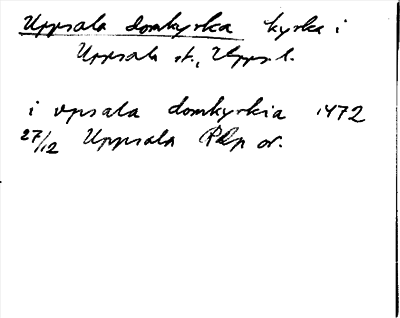 Uppsala domkyrka kyrka i
Uppsala st., Upps. l.
i vpsala domkyrkia 1472
27/12 Uppsala RAp or.